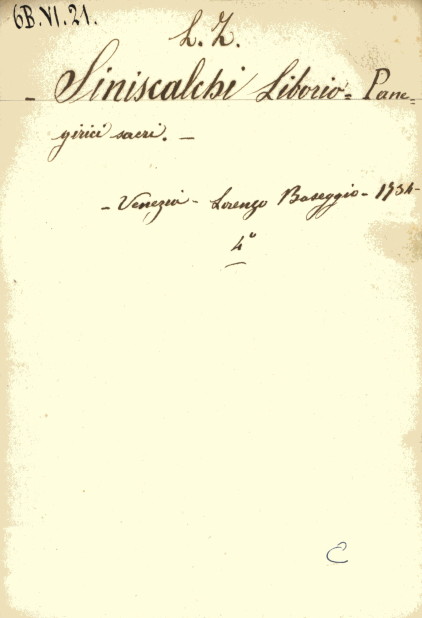 6B.VI.21.
L. Z.
- Siniscalchi Liborio = Pane=
girici sacri. -
- Venezia - Lorenzo Baseggio - 1734 -
4°
C